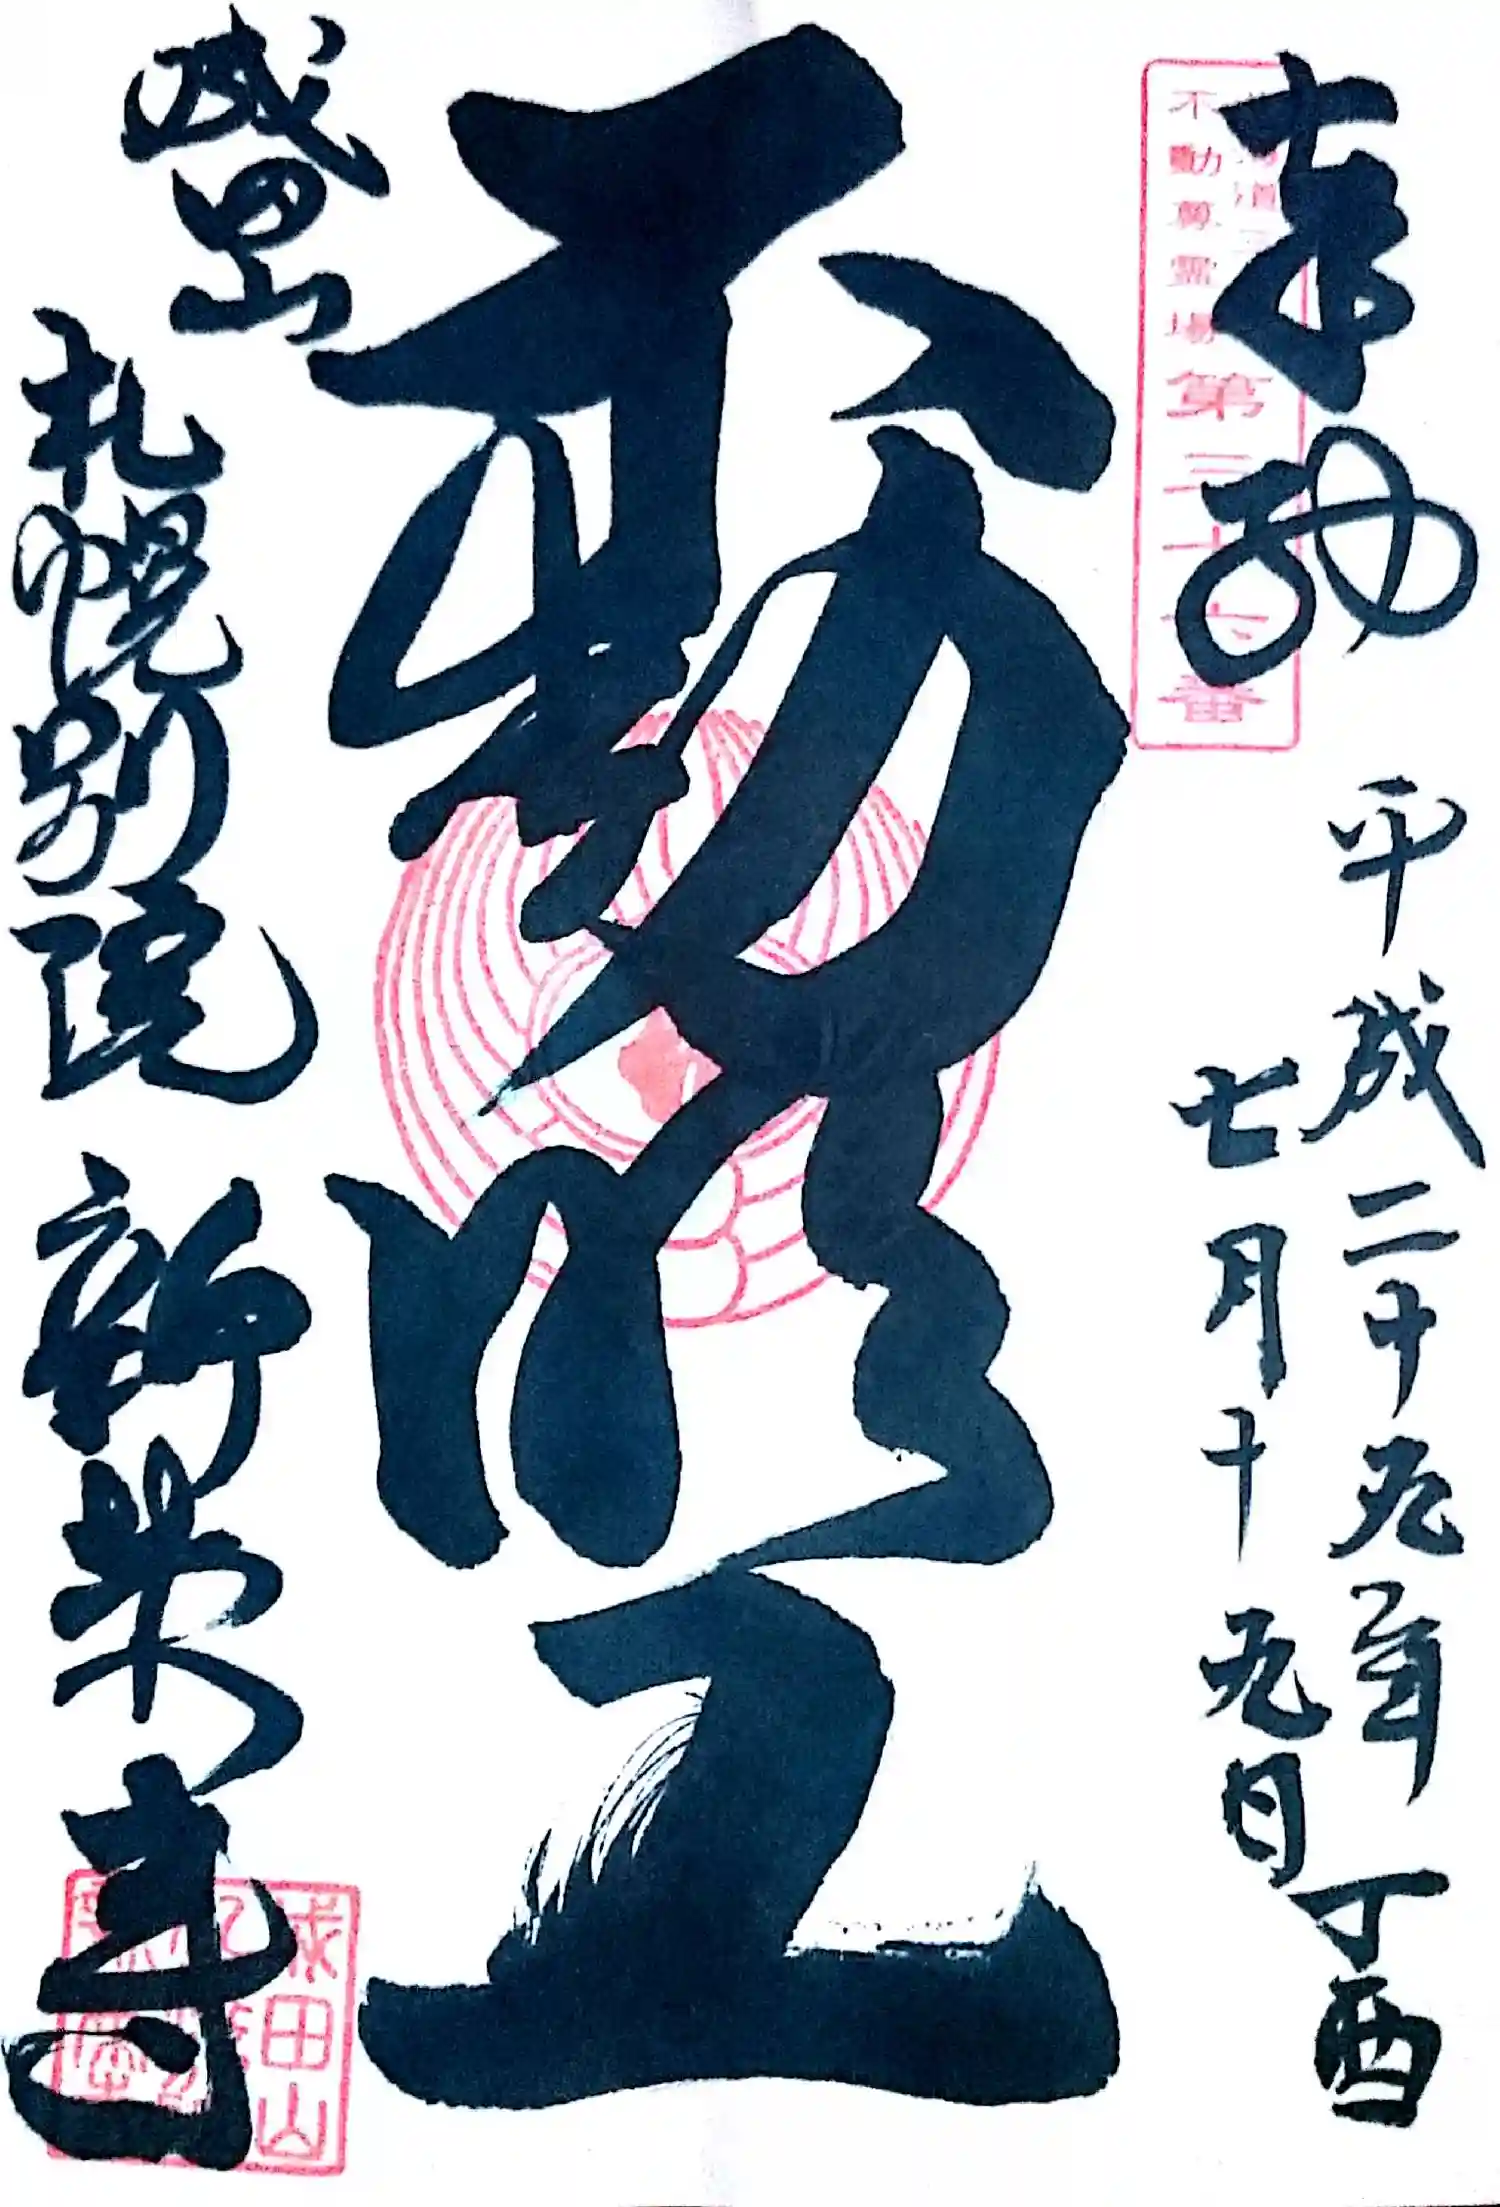 奉拝
北海道三十六
不動尊霊場第三十六番
平成二十九年丁酉
七月十九日
不動明王
成田山
札幌別院新栄寺
成田山